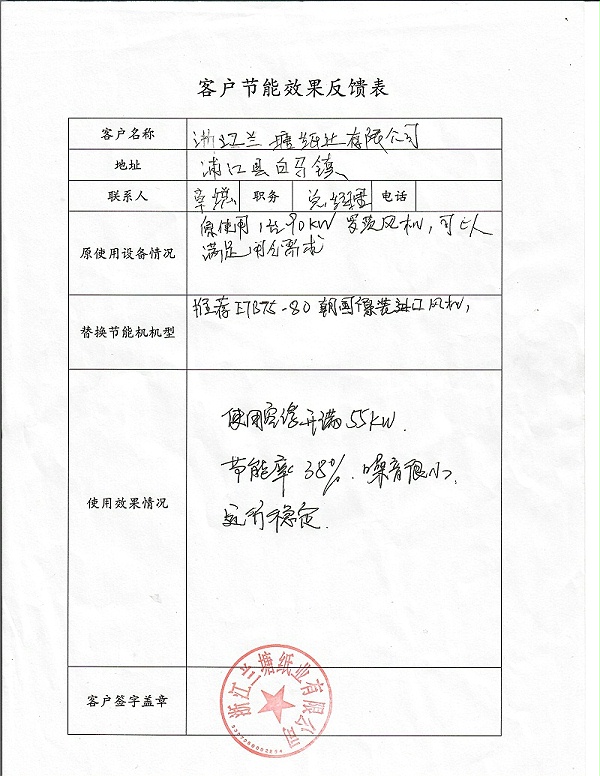 客户节能效果反馈表
客户名称 浙江兰塘纸业有限公司
地址 浦江县白马镇
联系人 职务 总经理 电话
原使用设备情况 原使用1台90KW罗茨风机,可以
满足 需求
替换节能机机型 推荐 75-80 韩国原装进口风机,
使用效果情况
使用 开满55KW.
节能率38%.噪音很小、
运行稳定.
客户签字盖章
浙江兰塘纸业有限公司